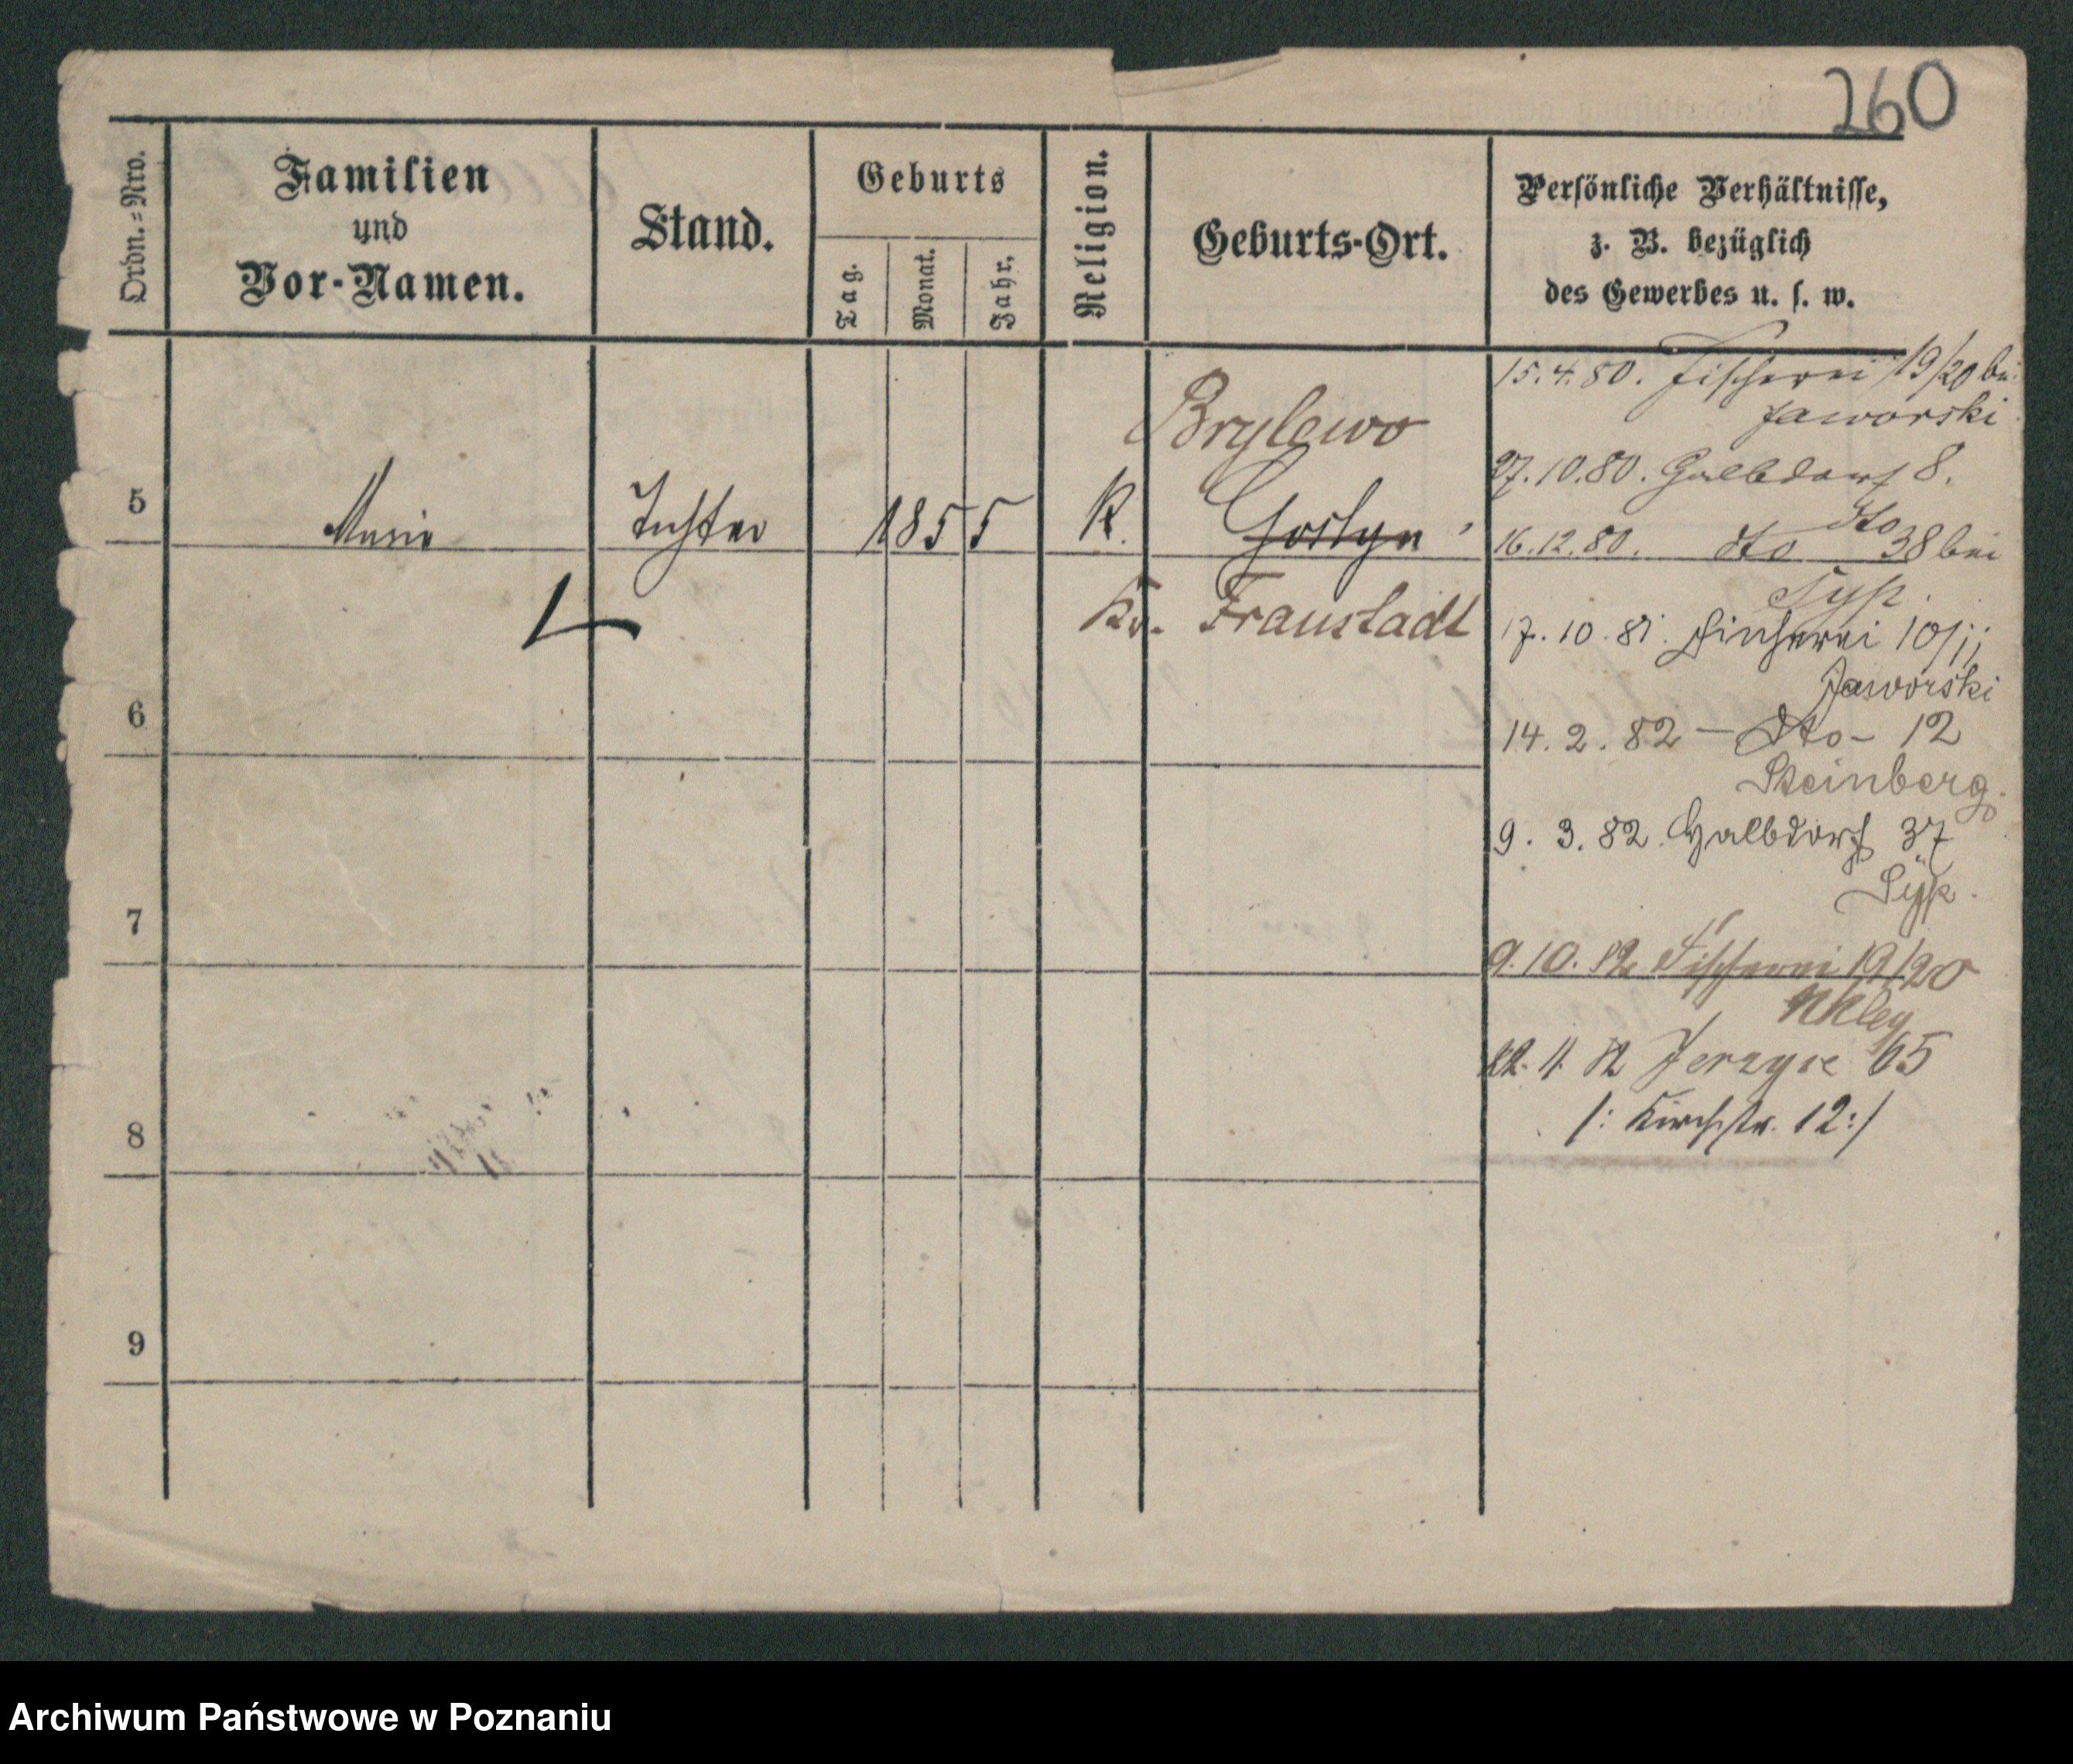 260
Ordn.=Nro.
Familien
und
Vor-Namen.
Stand.
Geburts
Tag.
Monat.
Jahr.
Religion.
Geburts-Ort.
Persönliche Verhältnisse,
z. B. bezüglich
des Gewerbes u. s. w.
5
Marie
Tochter
1855
K.
Brylewo
Gostyn
Kr. Fraustadt
15.4.80. Fischerei 19/20 bei
Jaworski
27.10.80. Halbdorf 8.
dto
16.12.80. dto 38 bei
Syp.
17.10.81. Fischerei 10/11
Jaworski
14.2.82 — dto — 12
Steinberg.
9.3.82. Halbdorf 37
Syp.
9.10.82 Fischerei 19/20
22.11.82 Jerzyce 65
/: Kirchstr. 12:/
6
7
8
9
Archiwum Państwowe w Poznaniu